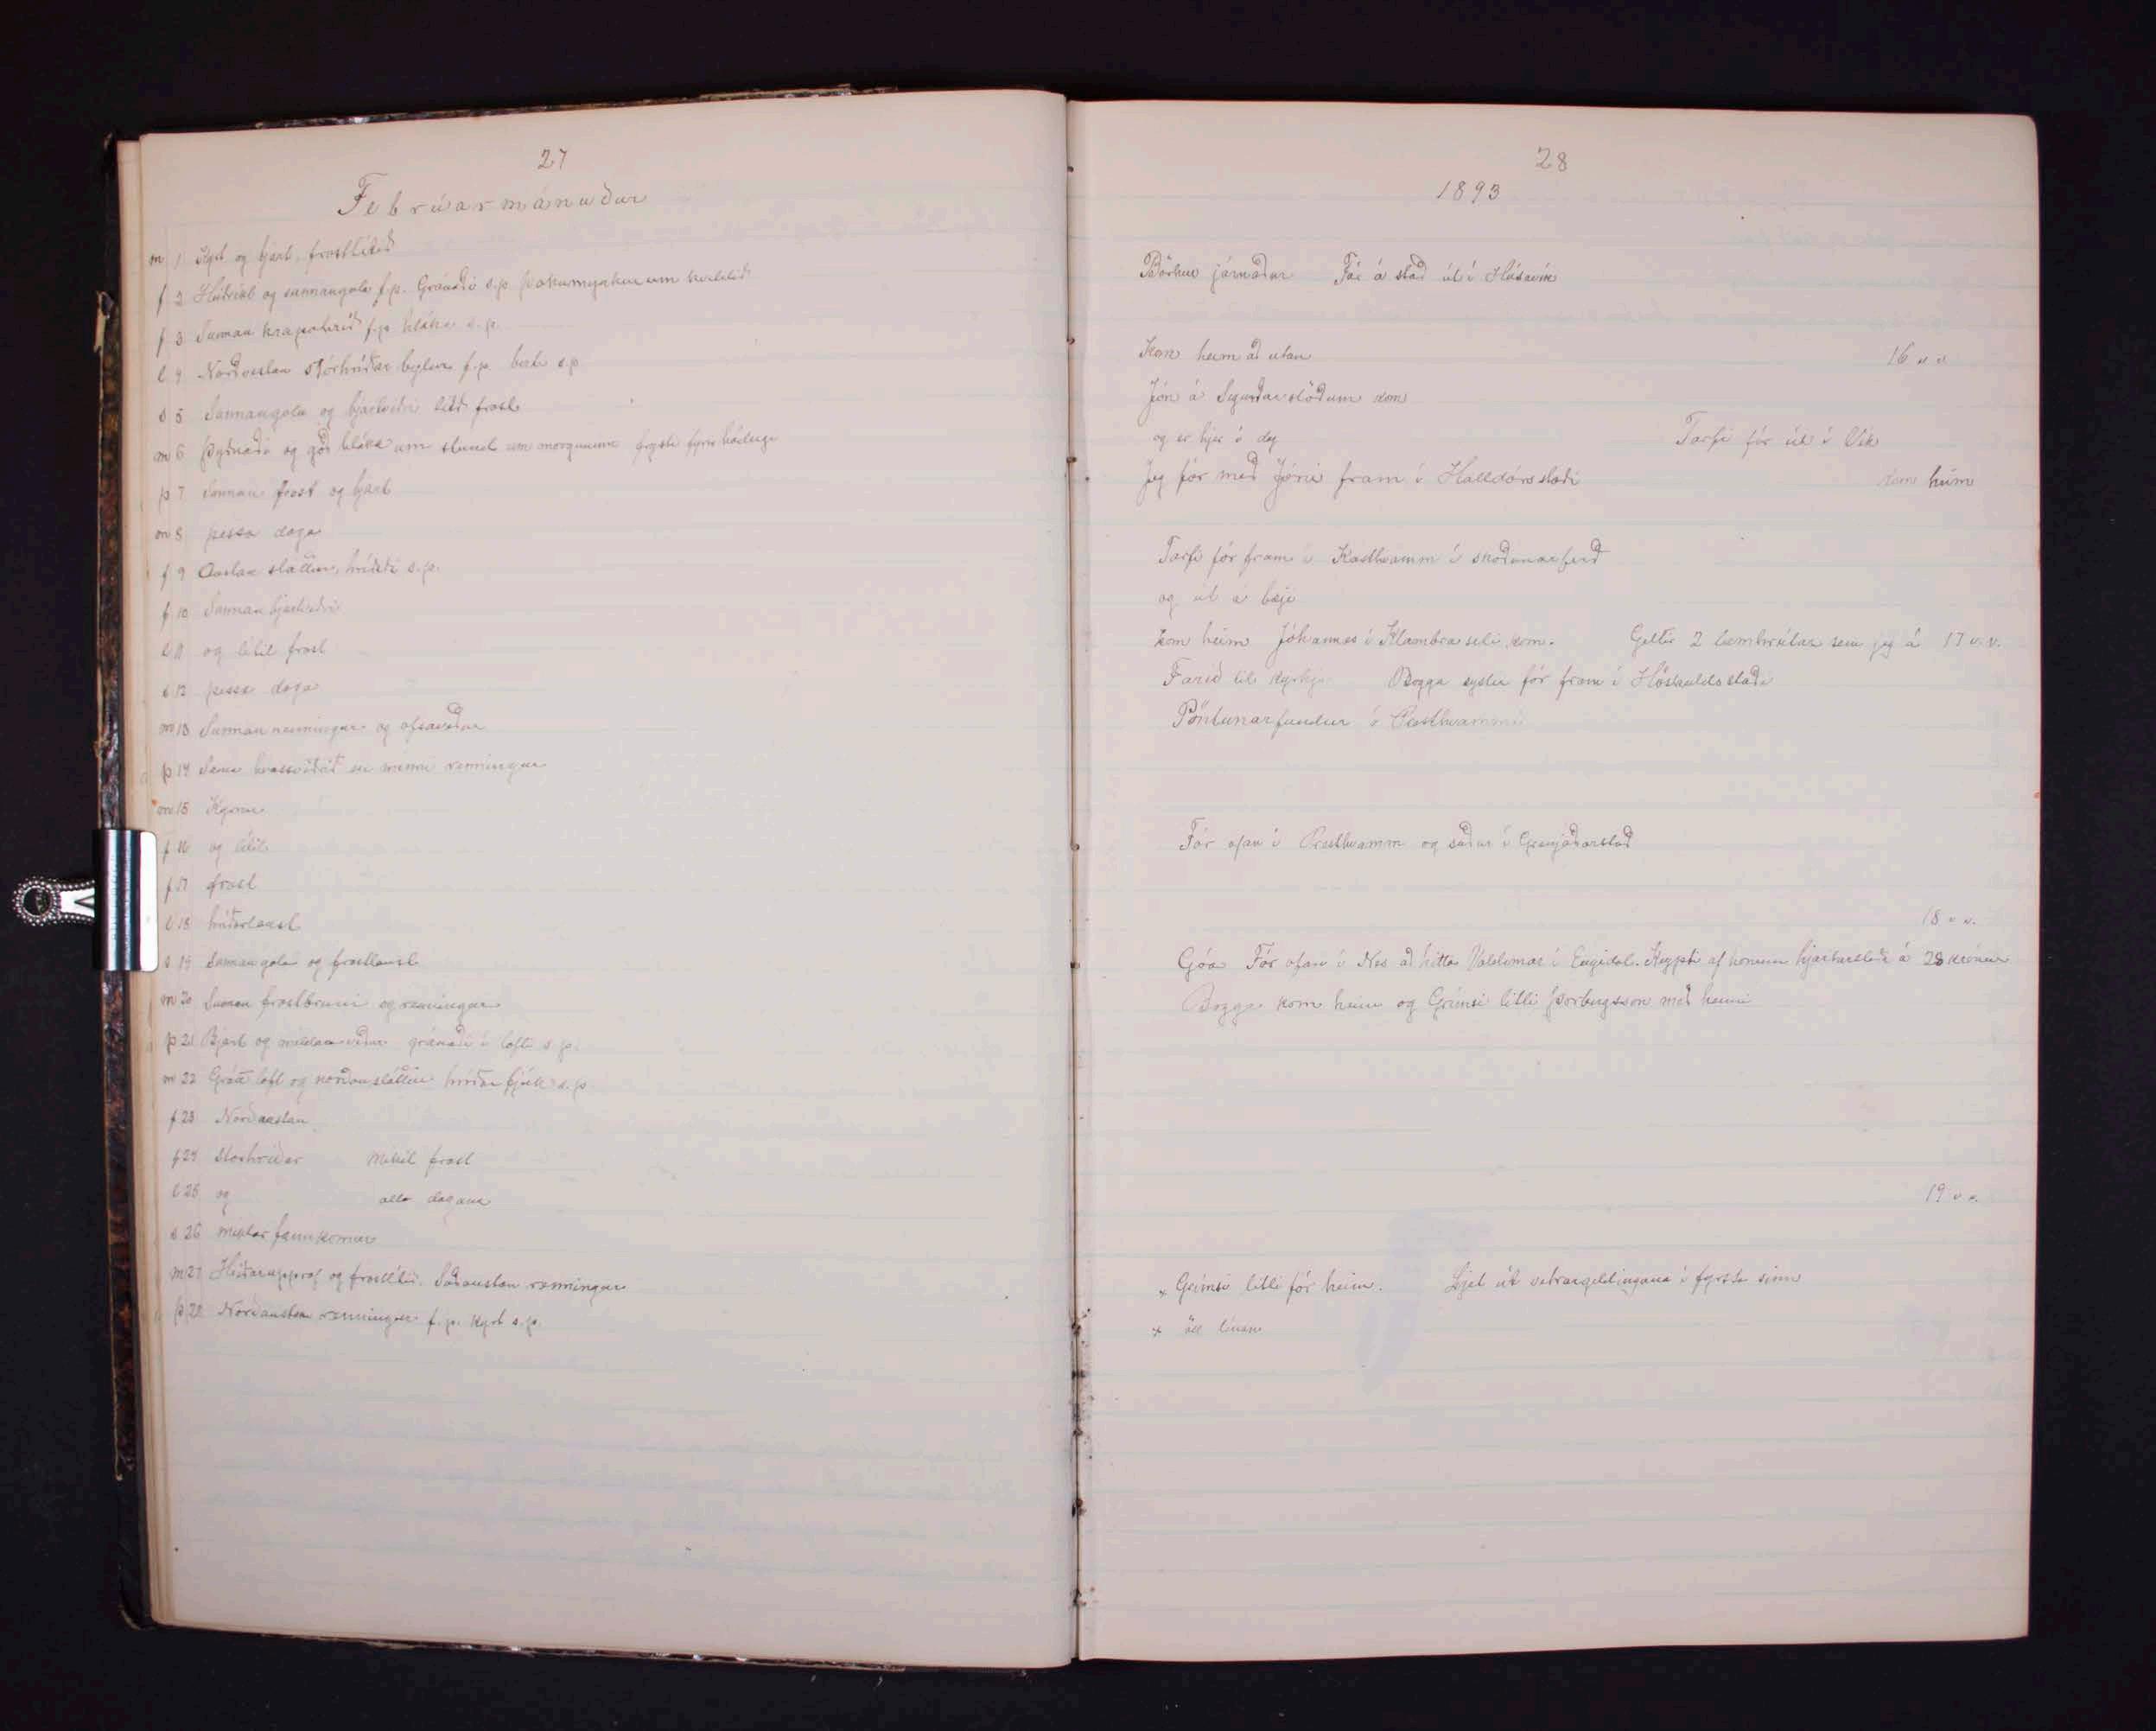 27
Febrúarmánuður
m 1 Kyrt og bjart, frostlítið
f 2 Heiðríkt og sunnangola f.p. Gránaði s.p. þokumyrkur um kveldið
f 3 Sunnan krapahríð f.p. hláka s.p.
l 4 Norðvestan stórhríðar bylur f.p. birti s.p
s 5 Sunnangola og bjartviðri lítið frost
m 6 Þyðnaði og góð hláka um stund um morguninn frysti fyrir hádegi
þ 7 Sunnan frost og bjart
m 8 þessa daga
f 9 Austan sláttur, hríðði s.p.
f 10 Sunnan bjartviðri
l 11 og lítil frost
s 12 þessa daga
m 13 Sunnan renningur og ofsaveður
þ 14 Sama hvassviðrið en minni renningur
m 15 Kyrrur
f 16 og lítil
f 17 frost
l 18 hríðarlaust
s 19 Sunnangola og frostlaust
m 20 Sunnan frostbruni og renningur
þ 21 Bjart og mildara veður gránaði í lofti s.p.
m 22 Grátt loft og norðansláttur hríðar fjúk s.p
f 23 Norðaustan
f 24 stórhríðar mikil frost
l 25 og alla dagana
s 26 miklar fannkomur
m 27 Hríðarupprof og frostlítið. Suðaustan renningur
þ 28 Norðaustan renningur f.p. kyrt s.p.
28
1893
Börkur járnaður Fór á stað út í Húsavík
Kom heim að utan 16 v v
Jón á Sigurðarstöðum kom
og er hjer í dag Torfi fór út í Vík
Jeg fór með Jóni fram í Halldórsstaði kom heim
Torfi fór fram í Kasthvamm í skoðunarferð
og út á bæji
kom heim Jóhannes í Klambraseli kom. Gelti 2 lambhrúta sem jeg á 17 v.v.
Farið til kyrkju Bogga systir fór fram í Höskuldsstaði
Pöntunarfundur í Presthvammi
Fór ofan í Presthvamm og suður í Grenjaðarstað
18 v v.
Góa Fór ofan í Nes að hitta Valdimar í Engidal. Keypti af honum hjartarslaði á 28 krónur
Bogga kom heim og Grímsi litli Þorbergsson með henni
19 v v.
x Grímsi litli fór heim. Ljet út vetrargeldingana í fyrsta sinn
x öll línan